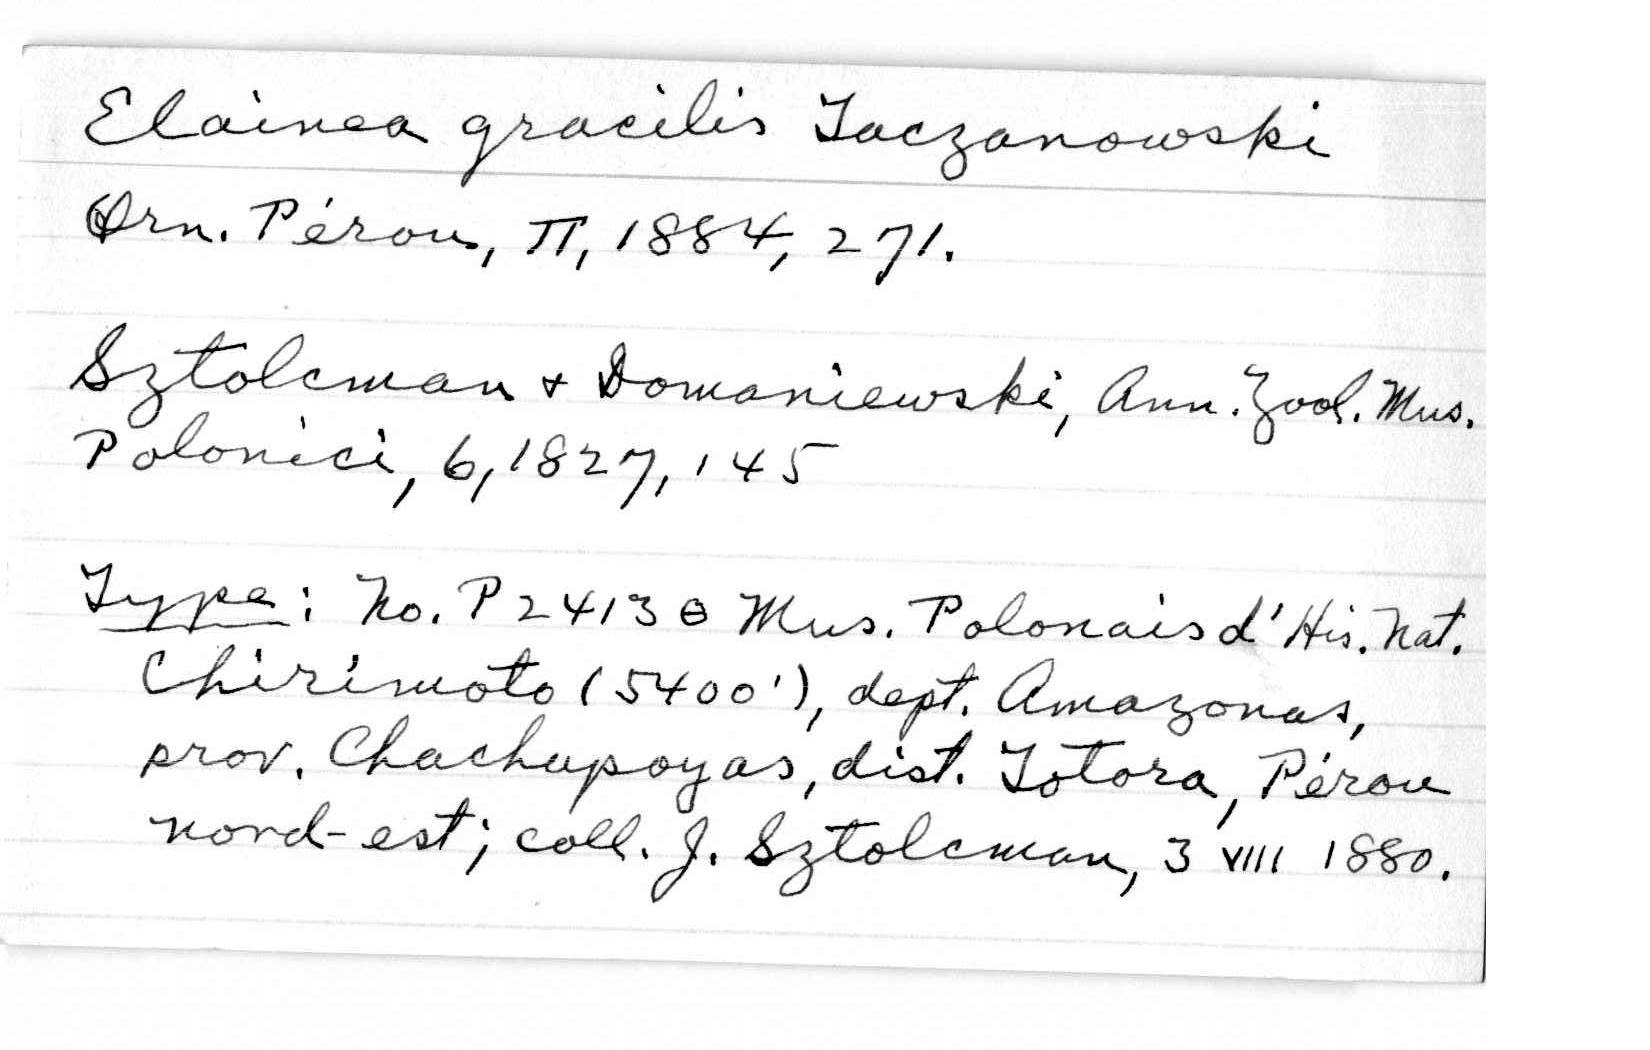 Elainea gracilis Taczanowski
Orn. Pérou, II, 1884, 271.
Sztolcman + Domaniewski, Ann. Zool. Mus.
Polonici, 6, 1827, 145
Type: No. P 2413 ♂ Mus. Polonais d'His. Nat.
Chirimoto (5400'), dept. Amazonas,
prov. Chachapoyas, dist. Totora, Pérou
nord-est; coll. J. Sztolcman, 3 VIII 1880.